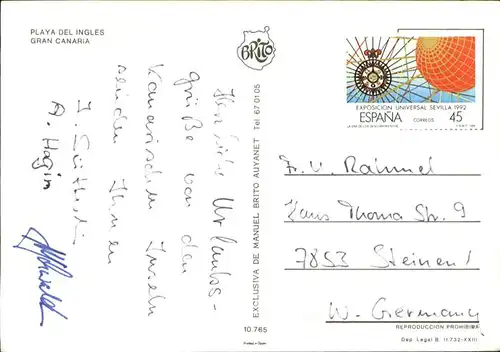 PLAYA DEL INGLES
GRAN CANARIA
BRITO
EXPOSICION UNIVERSAL SEVILLA 1992
ESPAÑA
CORREOS
45
Herzliche Urlaubs-
grüße von den
Kanarischen Inseln
senden Ihnen
A. Hagin
EXCLUSIVA DE MANUEL BRITO AUYANET Tel. 67 01 05
10.765
Printed in Spain
Hans Thoma Str. 9
7853 Steinen
W. Germany
REPRODUCCION PROHIBIDA
Dep. Legal B. 11.732-XXIII